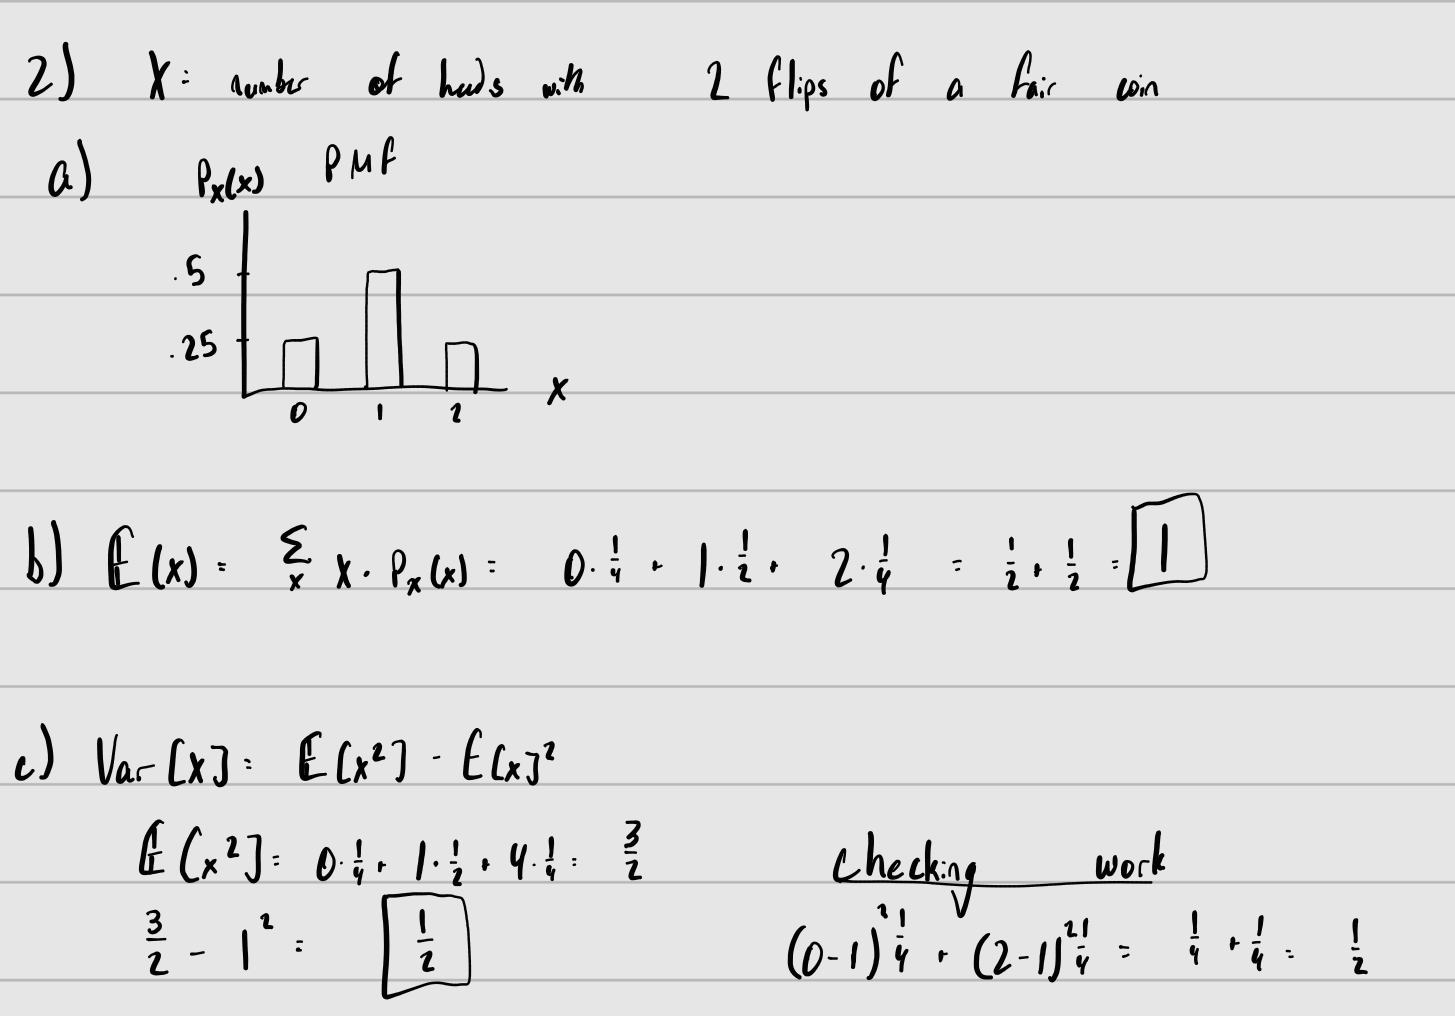 2) X = number of heads with 2 flips of a fair coin
a) Pₓ(x) PMF
.5
.25
0 1 2 X
b) 𝔼(x) = Σₓ x · Pₓ(x) = 0 · 1/4 + 1 · 1/2 + 2 · 1/4 = 1/2 + 1/2 = 1
c) Var[X] = 𝔼[x²] - E[x]²
𝔼[x²] = 0 · 1/4 + 1 · 1/2 + 4 · 1/4 = 3/2
3/2 - 1² = 1/2
Checking work
(0-1)² 1/4 + (2-1)² 1/4 = 1/4 + 1/4 = 1/2